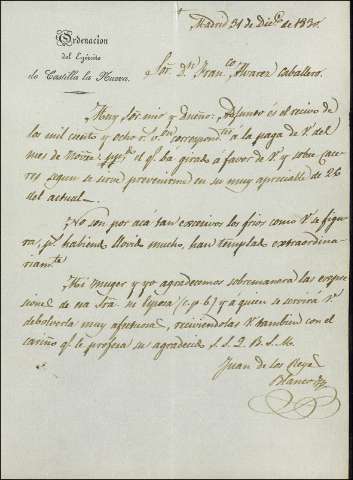 Ordenacion
del Egército
de Castilla la Nueva.
Madrid 31 de Dicre de 1830.
Sor. Dn. Franco. Alvarez Caballero.
Muy Sor. mio y Dueño: Adjunto es el recivo de
los mil ciento y ocho rs. von. correspondtes. á la paga de V. del
mes de el qe. ha girado á favor de V. y sobre Cace
res segun se sirve prevenirme en su muy apreciable de 26
del actual.
No son por acá tan excesivos los frios como V. se figu
ra, ps. habiendo llovido mucho, han templado extraordina-
riamte.
Mi muger y yo agradecemos sobremanera las expre
siones de esa Sra. su Esposa (c. p. b.) y á quien se servirá V.
debolverla muy afectuosas, reciviendolas V. tambien con el
cariño qe. le profesa su agradecido S. S. Q. B. S. M.
Juan de los Reyes
Blanco